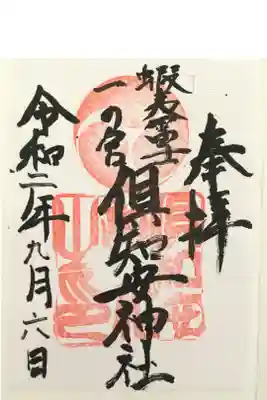 奉拝
蝦夷富士
一の宮
倶知安神社
令和二年九月六日